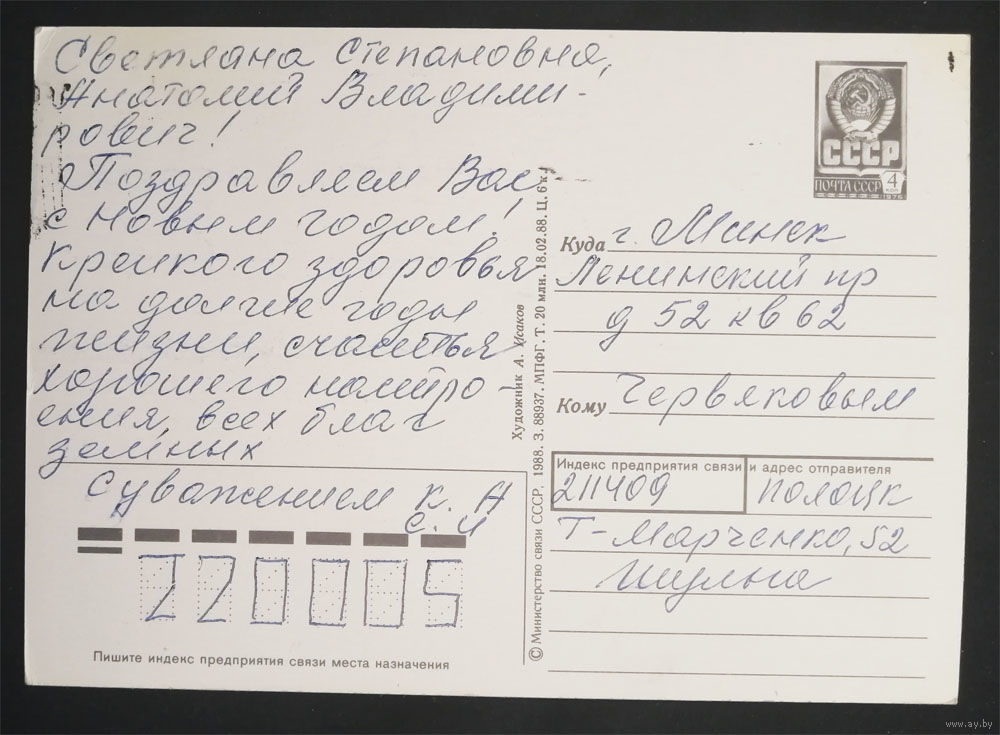 Светлана Степановна,
Анатолий Владими-
рович!
Поздравляем Вас
с Новым годом!
Крепкого здоровья
на долгие годы
жизни, счастья
хорошего настро-
ения, всех благ
земных
С уважением К. А
С. И
220005
Пишите индекс предприятия связи места назначения
© Министерство связи СССР. 1988. З. 88937. МПФГ. Т. 20 млн. 18.02.88. Ц. 6 к.
Художник А. Исаков
СССР
ПОЧТА СССР
4
КОП
1976
Куда г. Минск
Ленинский пр
д 52 кв 62
Кому Червяковым
Индекс предприятия связи и адрес отправителя
211409 Полоцк
Т-Марченко, 52
www.ay.by